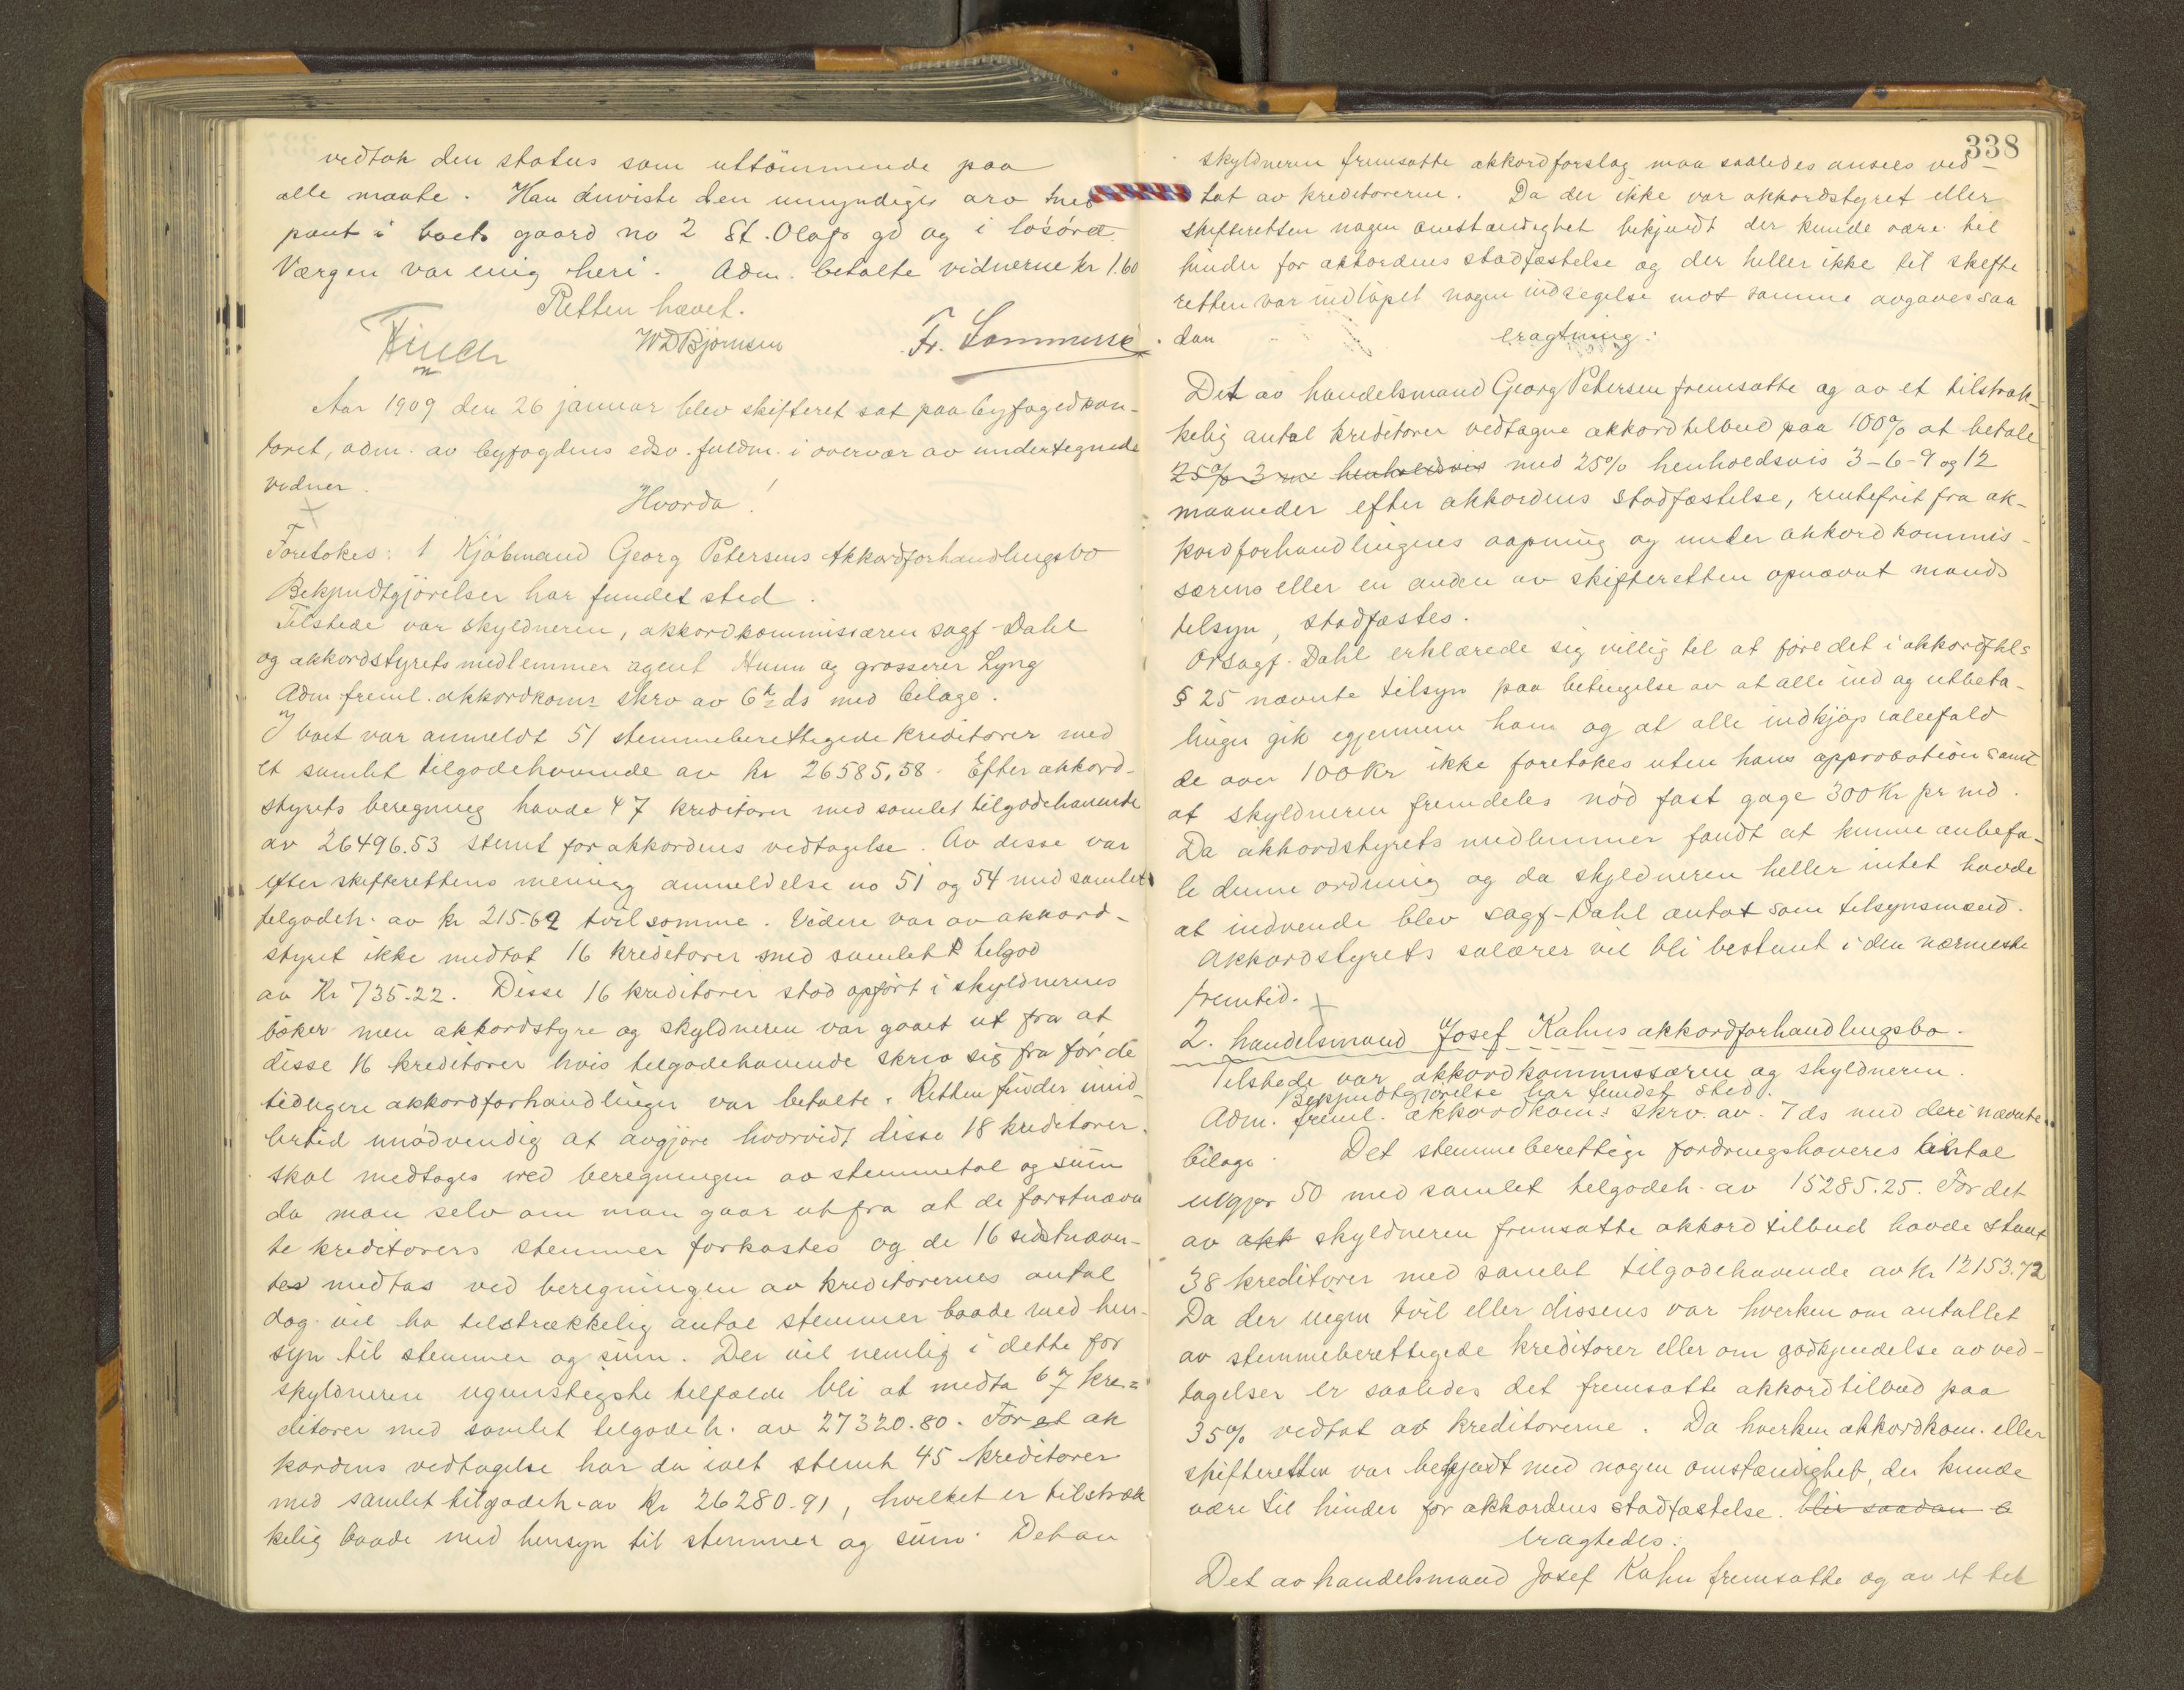 vedtok den status som uttömmende paa
alle maate. Han anviste den umyndiges arv med
pant i boets gaard no 2 St. Olafs gd og i lösöret.
Værgen var enig heri. Adm. betalte vidnerne kr 1.60
Retten hævet.
Finch
WDBjörnsen
Fr. Sommer
Aar 1909 den 26 januar blev skifteret sat paa byfogedkon-
toret, adm. av byfogdens edsv. fuldm. i overvær av undertegnede
vidner.
Hvorda!
Foretokes: 1 Kjöbmand Georg Petersens Akkordforhandlingsbo
Bekjendtgjörelser har fundet sted.
Tilstede var skyldneren, akkordkommissæren sagf-Dahl
og akkordstyrets medlemmer agent Hunn og grosserer Lyng
Adm freml. akkordkoms skrv av 6te ds med bilage.
I boet var anmeldt 51 stemmeberettigede kreditorer med
et samlet tilgodehavende av kr 26585,58. Efter akkord-
styrets beregning havde 47 kreditorer med samlet tilgodehavende
av 26496.53 stemt for akkordens vedtagelse. Av disse var
efter skifterettens mening anmeldelse no 51 og 54 med samlet
tilgodeh. av kr 215-62 tvilsomme. Videre var av akkord-
styret ikke medtat 16 kreditorer med samlet tilgod
av Kr 735-22. Disse 16 kreditorer stod opfört i skyldnerens
böker men akkordstyre og skyldneren var gaaet ut fra at
disse 16 kreditorer hvis tilgodehavende skrev sig fra för de
tidligere akkordforhandlinger var betalte. Retten finder imid-
lertid unödvendig at avgjöre hvorvidt disse 18 kreditorer
skal medtages ved beregningen av stemmetal og sum
da man selv om man gaar ut fra at de förstnævn
te kreditorers stemmer forkastes og de 16 sidstnævn-
tes medtas ved beregningen av kreditorernes antal
dog vil ha tilstrækkelig antal stemmer baade med hen-
syn til stemmer og sum. Der vil nemlig i dette for
skyldneren ugunstigste tilfælde bli at medta 67 kre-
ditorer med samlet tilgodeh. av 27320.80. For ak
kordens vedtagelse har da ialt stemt 45 kreditorer
med samlet tilgodeh. av Kr 26280-91, hvilket er tilstræk
kelig baade med hensyn til stemmer og sum. Det av
338
skyldneren fremsatte akkordforslag maa saaledes ansees ved-
tat av kreditorerne. Da der ikke var akkordstyret eller
skifteretten nogen omstændighet bekjendt der kunde være til
hinder for akkordens stadfæstelse og der heller ikke til skifte
retten var indlöpet nogen indsigelse mot samme avgaves saa
dan eragtning:
Det av handelsmand Georg Petersen fremsatte og av et tilstræk-
kelig antal kreditorer vedtagne akkordtilbud paa 100% at betale
25% 3 m henholdsvis med 25% henholdsvis 3-6-9 og 12
maaneder efter akkordens stadfæstelse, rentefrit fra ak-
kordforhandlingens aapning og under akkordkommis-
særens eller en anden av skifteretten opnævnt mands
tilsyn, stadfæstes.
Orsagf. Dahl erklærede sig villig til at före det i akkordfhls
§ 25 nævnte tilsyn paa betingelse av at alle ind og utbeta-
linger gik igjennem ham og at alle indkjöp ialfald
de over 100 Kr ikke foretokes uten hans approbation samt
at skyldneren fremdeles nöd fast gage 300 Kr pr md.
Da akkordstyrets medlemmer fandt at kunne anbefa-
le denne ordning og da skyldneren heller intet havde
at indvende blev sagf-Dahl antat som tilsynsmand.
Akkordstyrets salærer vil bli bestemt i den nærmeste
fremtid.
2. handelsmand Josef Kahns akkordforhandlingsbo.
Tilstede var akkordkommissæren og skyldneren.
Bekjendtgjörelse har fundet sted.
Adm. freml. akkordkom: skrv. av. 7 ds med deri nævnte
bilage. Det stemmeberettige fordringshaveres antal
utgjör 50 med samlet tilgodeh. av 15285.25. For det
av akk skyldneren fremsatte akkordtilbud havde stemt
38 kreditorer med samlet tilgodehavende av Kr 12153.72
Da der ingen tvil eller dissens var hverken om antallet
av stemmeberettigede kreditorer eller om godkjendelse av ved-
tagelser er saaledes det fremsatte akkordtilbud paa
35% vedtat av kreditorerne. Da hverken akkordkom. eller
skifteretten var bekjendt med nogen omstændighet, der kunde
være til hinder for akkordens stadfæstelse. blir saadan e
eragtedes:
Det av handelsmand Josef Kahn fremsatte og av et til